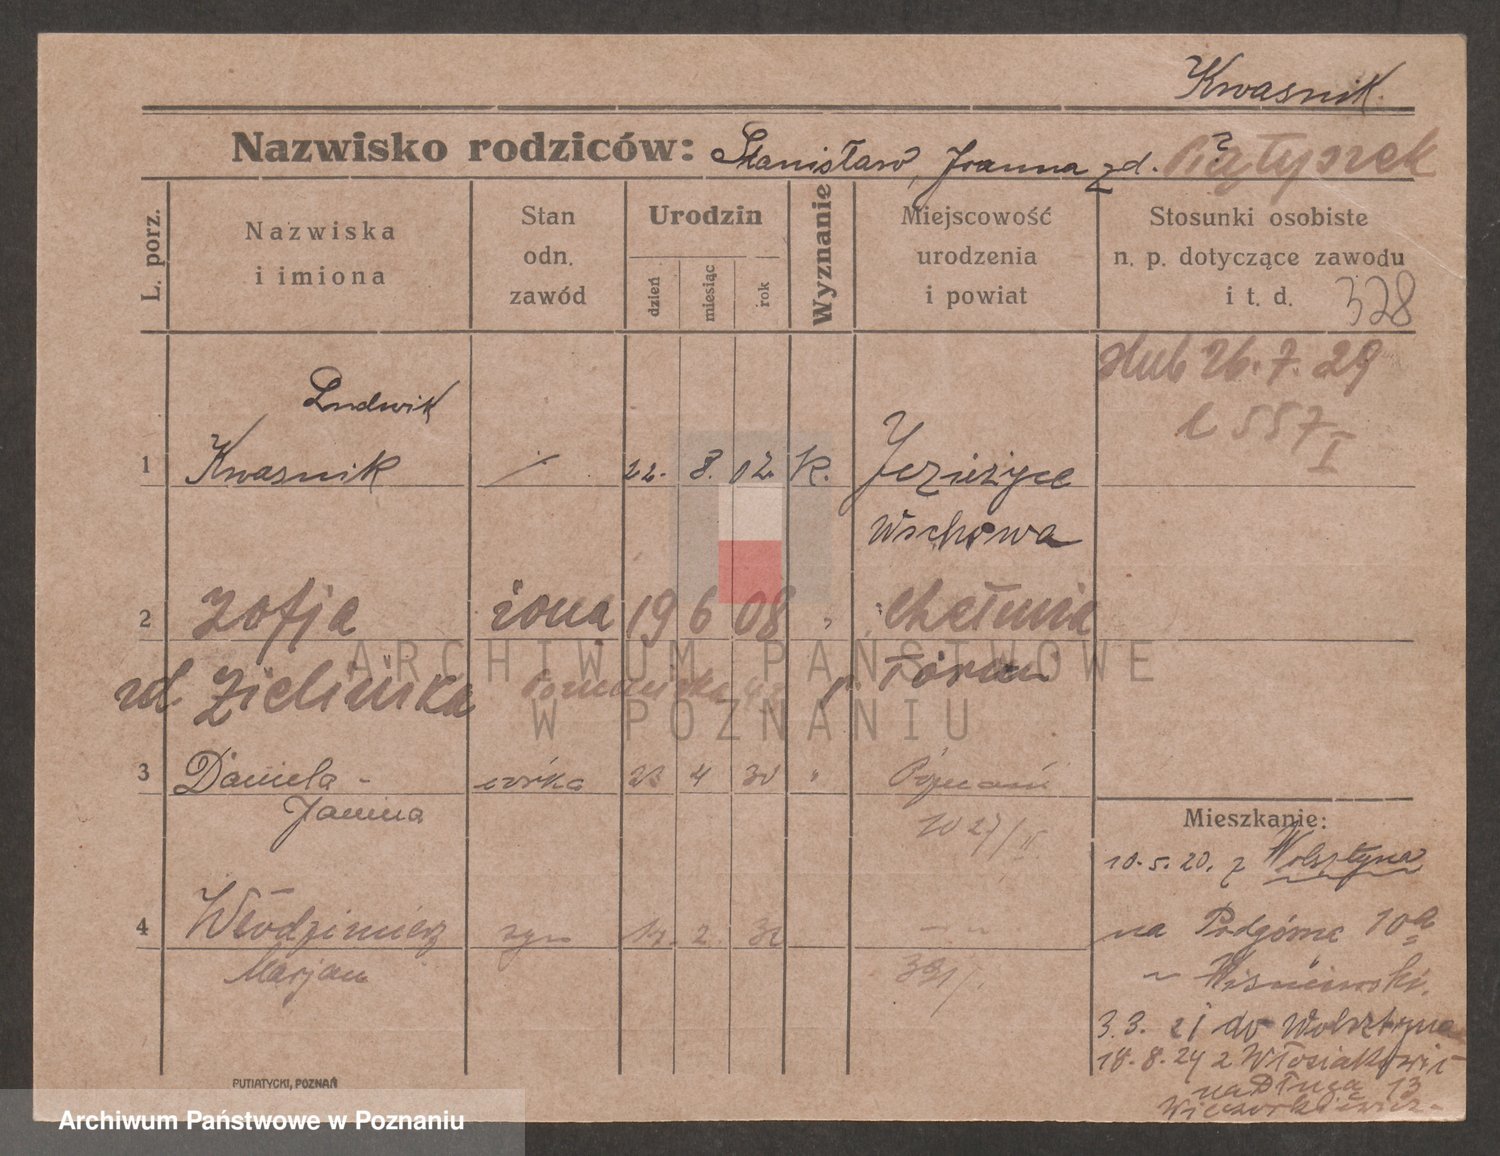 Kwasnik.
Nazwisko rodziców: Stanisław, Joanna zd. Piątyszek
?
L. porz.
Nazwiska
i imiona
Stan
odn.
zawód
Urodzin
dzień
miesiąc
rok
Wyznanie
Miejscowość
urodzenia
i powiat
Stosunki osobiste
n. p. dotyczące zawodu
i t. d.
328
ślub 26.7.29
l 557
I
Ludwik
1 Kwasnik 22. 8. 02. K. Jezieżyce
Wschowa
2 Zofja żona 19 6 08 " Chełmża
zd. Zielińska Toruń
3 Daniela - córka 23 4 30 " Poznań
Janina 1027/II
4 Włodzimierz syn 2 32 - " -
Marjan
Mieszkanie:
10.5.20. z Wolsztyna
na Podgórna 10a
~ Wiśniewski.
3.3. 21 do Wolsztyna
18.8.24 z Włosiakowic
na Długą 13
PUTIATYCKI, POZNAŃ
ARCHIWUM PAŃSTWOWE
W POZNANIU
Archiwum Państwowe w Poznaniu